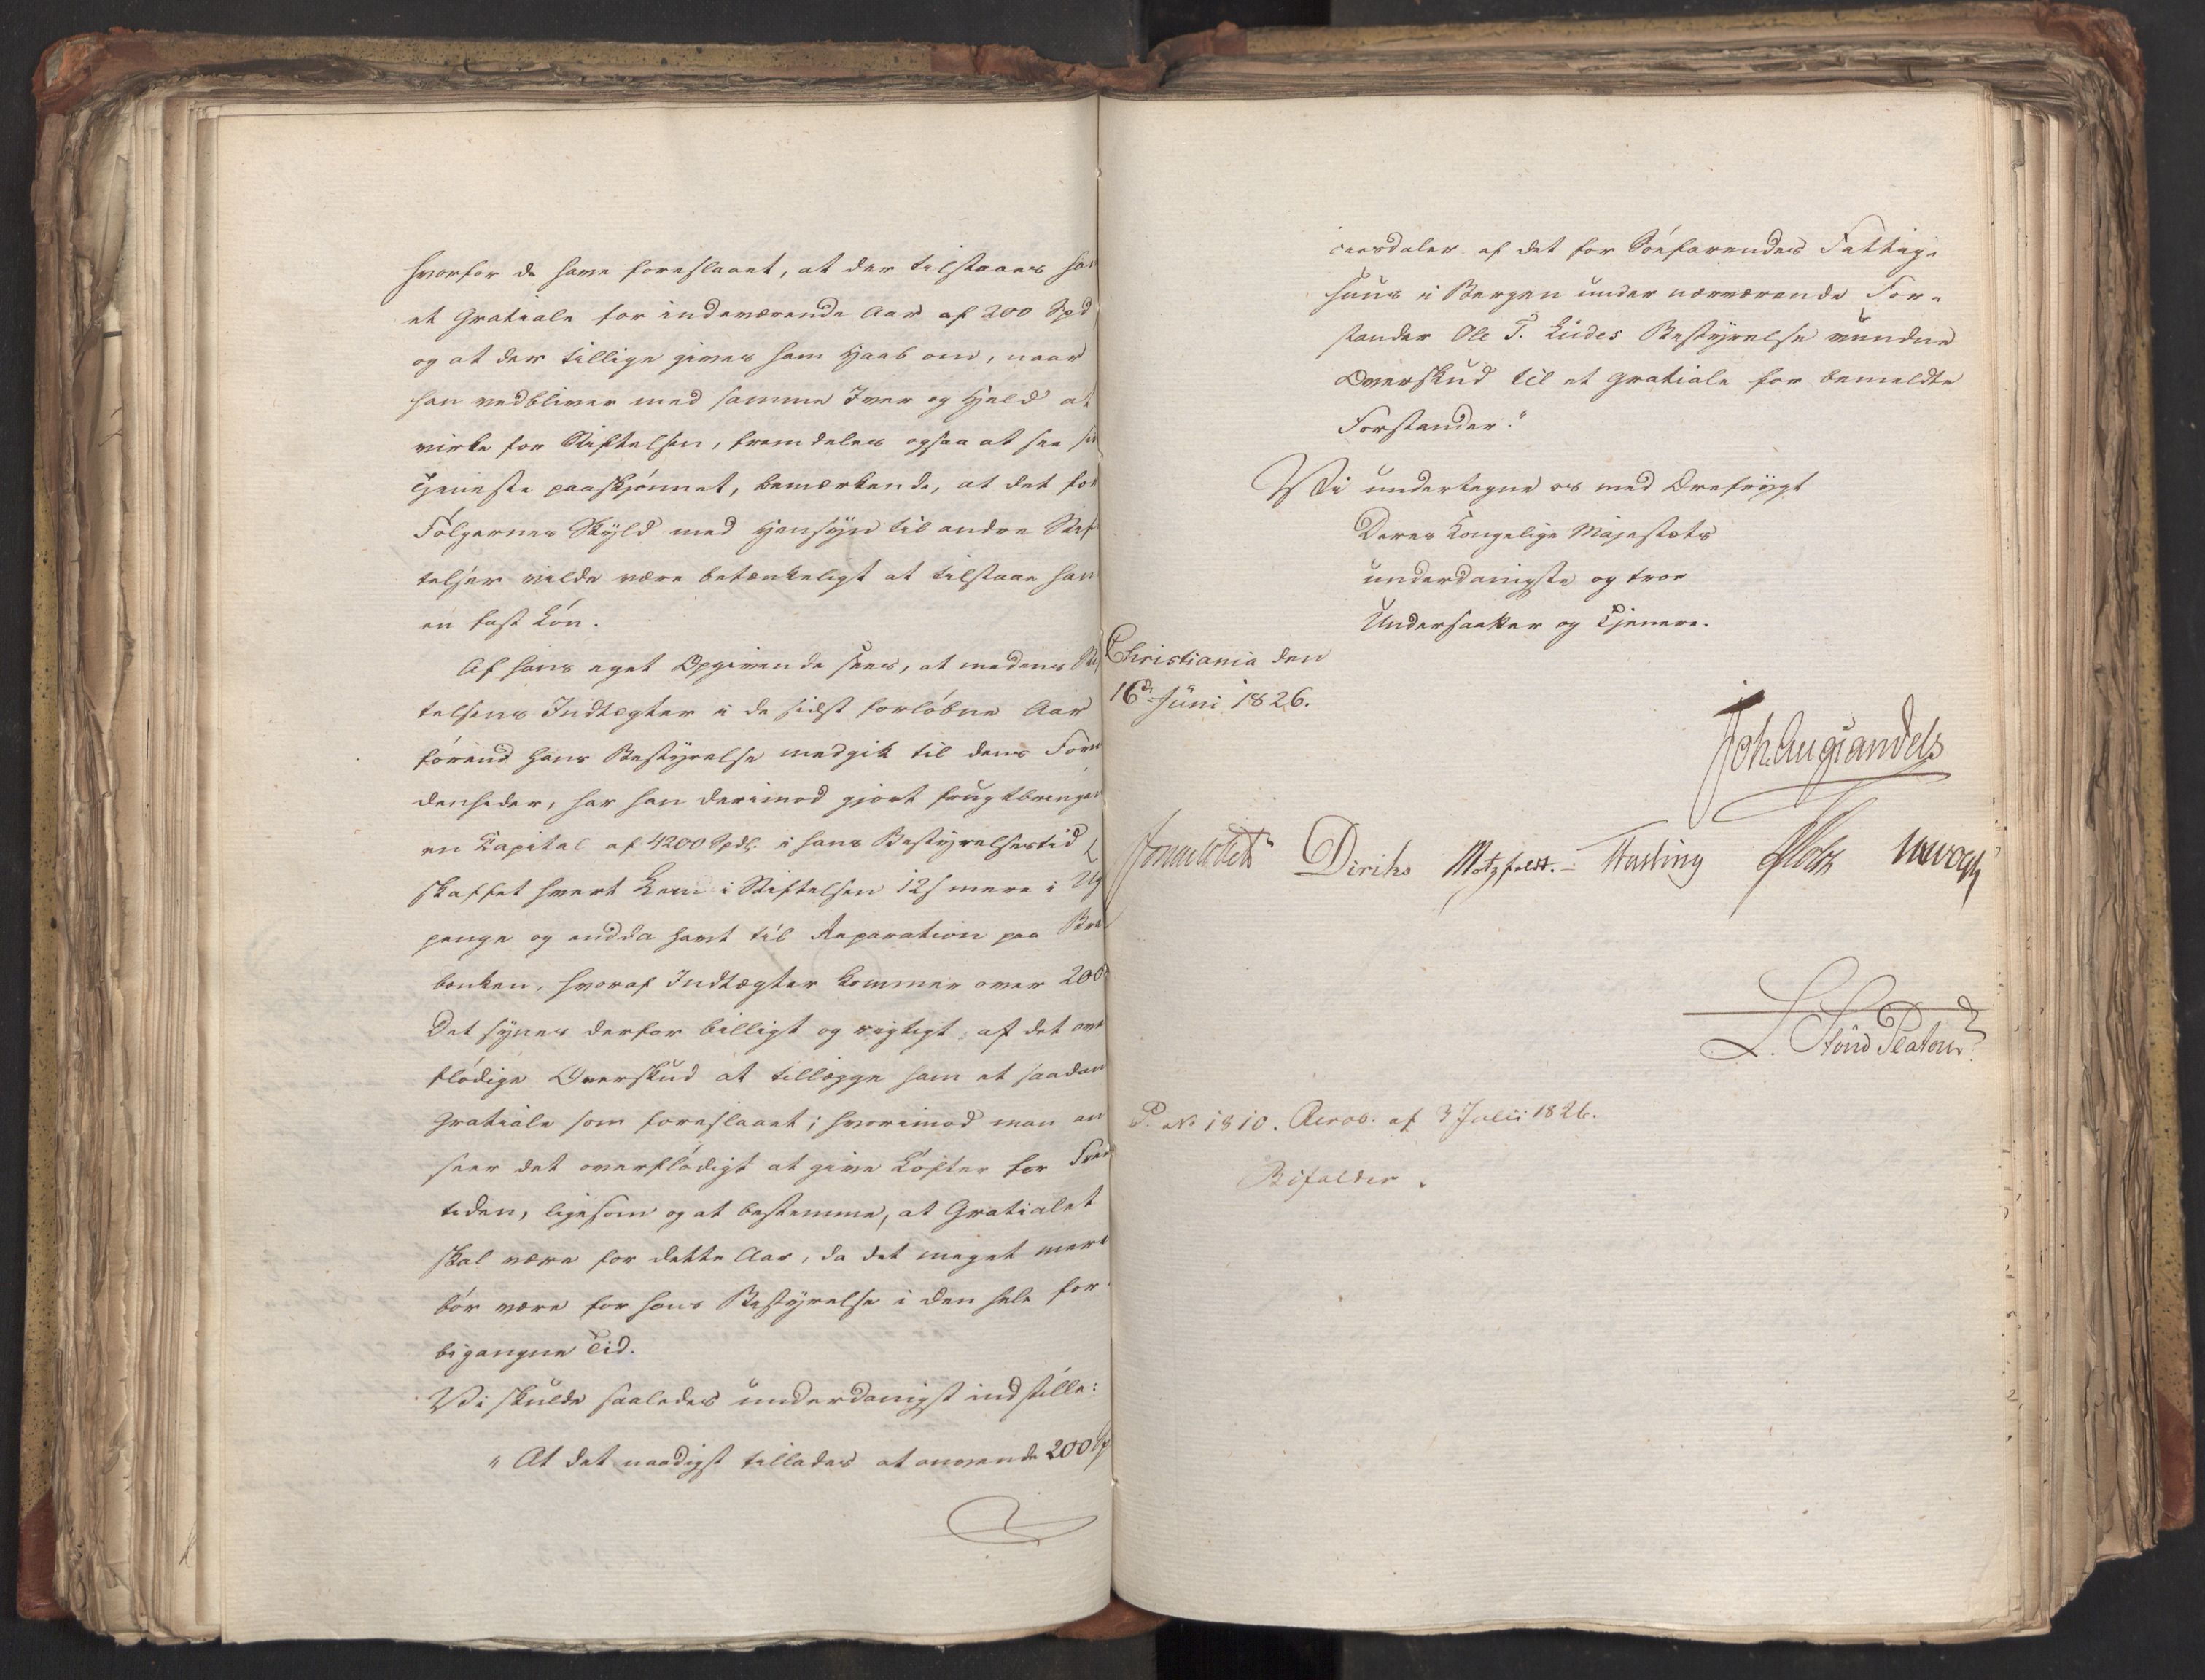 hvorfor de have foreslaaet, at der tilstaaes ham
et Gratiale for indeværende Aar af 200 Spd
og at der tillige gives ham Haab om, naar
han vedbliver med samme Iver og Held at
virke for Stiftelsen, fremdeles ogsaa at see sin
Tjeneste paaskjønnet, bemærkende, at det for
Følgernes Skyld med Hensyn til andre Stif
telser vilde være betænkeligt at tilstaae ham
en fast Løn.
Af hans eget Opgivende sees, at medens Stif
telsens Indtægter i de sidst forløbne Aar
førend hans Bestyrelse medgik til dens Forn
denheder, har han derimod gjort frugtbringen
en Kapital af 4200 Spdl. i hans Bestyrelsestid
skaffet hvert Lem i Stiftelsen 12 s mere i Uge
penge og endda havt til Reparation paa
benken, hvoraf Indtægter kommer over 200
Det synes derfor billigt og rigtigt, af det over
flødige Overskud at tillægge ham et saadan
Gratiale som foreslaaet; hvorimod man an
seer det overflødigt at give Løfter for Frem
tiden, ligesom og at bestemme, at Gratialet
skal være for dette Aar, da det meget mere
bør være for hans Bestyrelse i den hele for
bigangne Tid.
Vi skulde saaledes underdanigst indstille:
"At det naadigst tillades at anvende 200 Sp
ciesdaler af det for Søefarendes Fattig-
huus i Bergen under nærværende For-
stander Ole T. Liedes Bestyrelse vundne
Overskud til et Gratiale for bemeldte
Forstander."
Vi undertegne os med Ærefrygt
Deres Kongelige Majestæts
underdanigste og troe
Undersaatter og Tjenere.
Christiania den
16d Juni 1826.
Joh. Aug. Sandels
Sommerhielm Diriks Motzfeldt. Fasting JHolst
L. Stoud Platou
P. No 1810. Resol. af 3 Julii 1826.
Bifaldes.